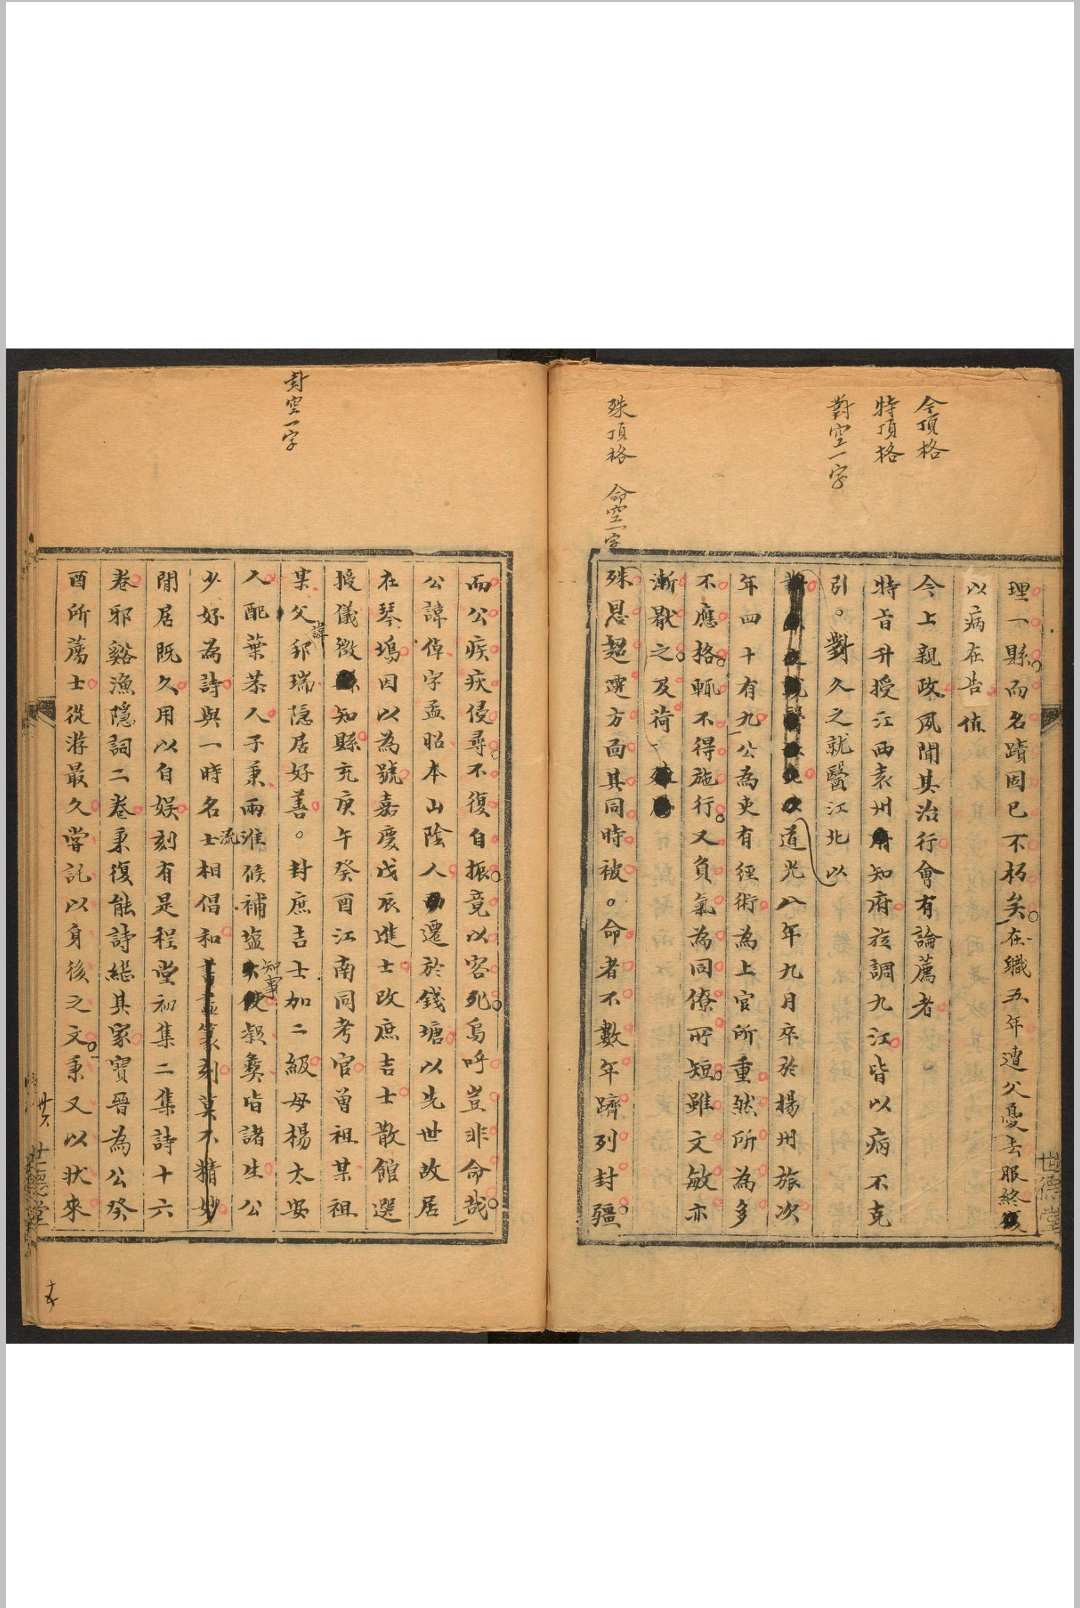 今頂格
特頂格
對空一字
殊頂格 命空一字
理一縣而名蹟固已不朽矣在職五年遭父憂去服終
以病在告值
今上親政夙聞其治行會有論薦者
特旨升授江西袁州知府旋調九江皆以病不克
引。對久之就醫江北以
道光八年九月卒於揚州旅次
年四十有九公為吏有經術為上官所重然所為多
不應格輒不得施行又負氣為同僚所短雖文敏亦
漸厭之及荷
殊恩超選方面其同時被。命者不數年躋列封疆
世德堂
封空一字
而公疾疢侵尋不復自振竟以客死烏呼豈非命哉
公諱倬字孟昭本山陰人遷於錢塘以先世故居
在琴塢因以為號嘉慶戊辰進士改庶吉士散館選
授儀徵知縣充庚午癸酉江南同考官曾祖某祖
某父諱邦瑞隱居好善。封庶吉士加二級母楊太安
人配葉恭人子秉雨淮候補鹽知事叔彝皆諸生公
少好為詩與一時名士流相倡和書畫篆刻莫不精妙
閒居既久用以自娛刻有是程堂初集二集詩十六
卷邪谿漁隱詞二卷秉復能詩繼其家寶晉為公癸
酉所薦士從游最久嘗託以身後之文秉又以狀來
廿六
世德堂